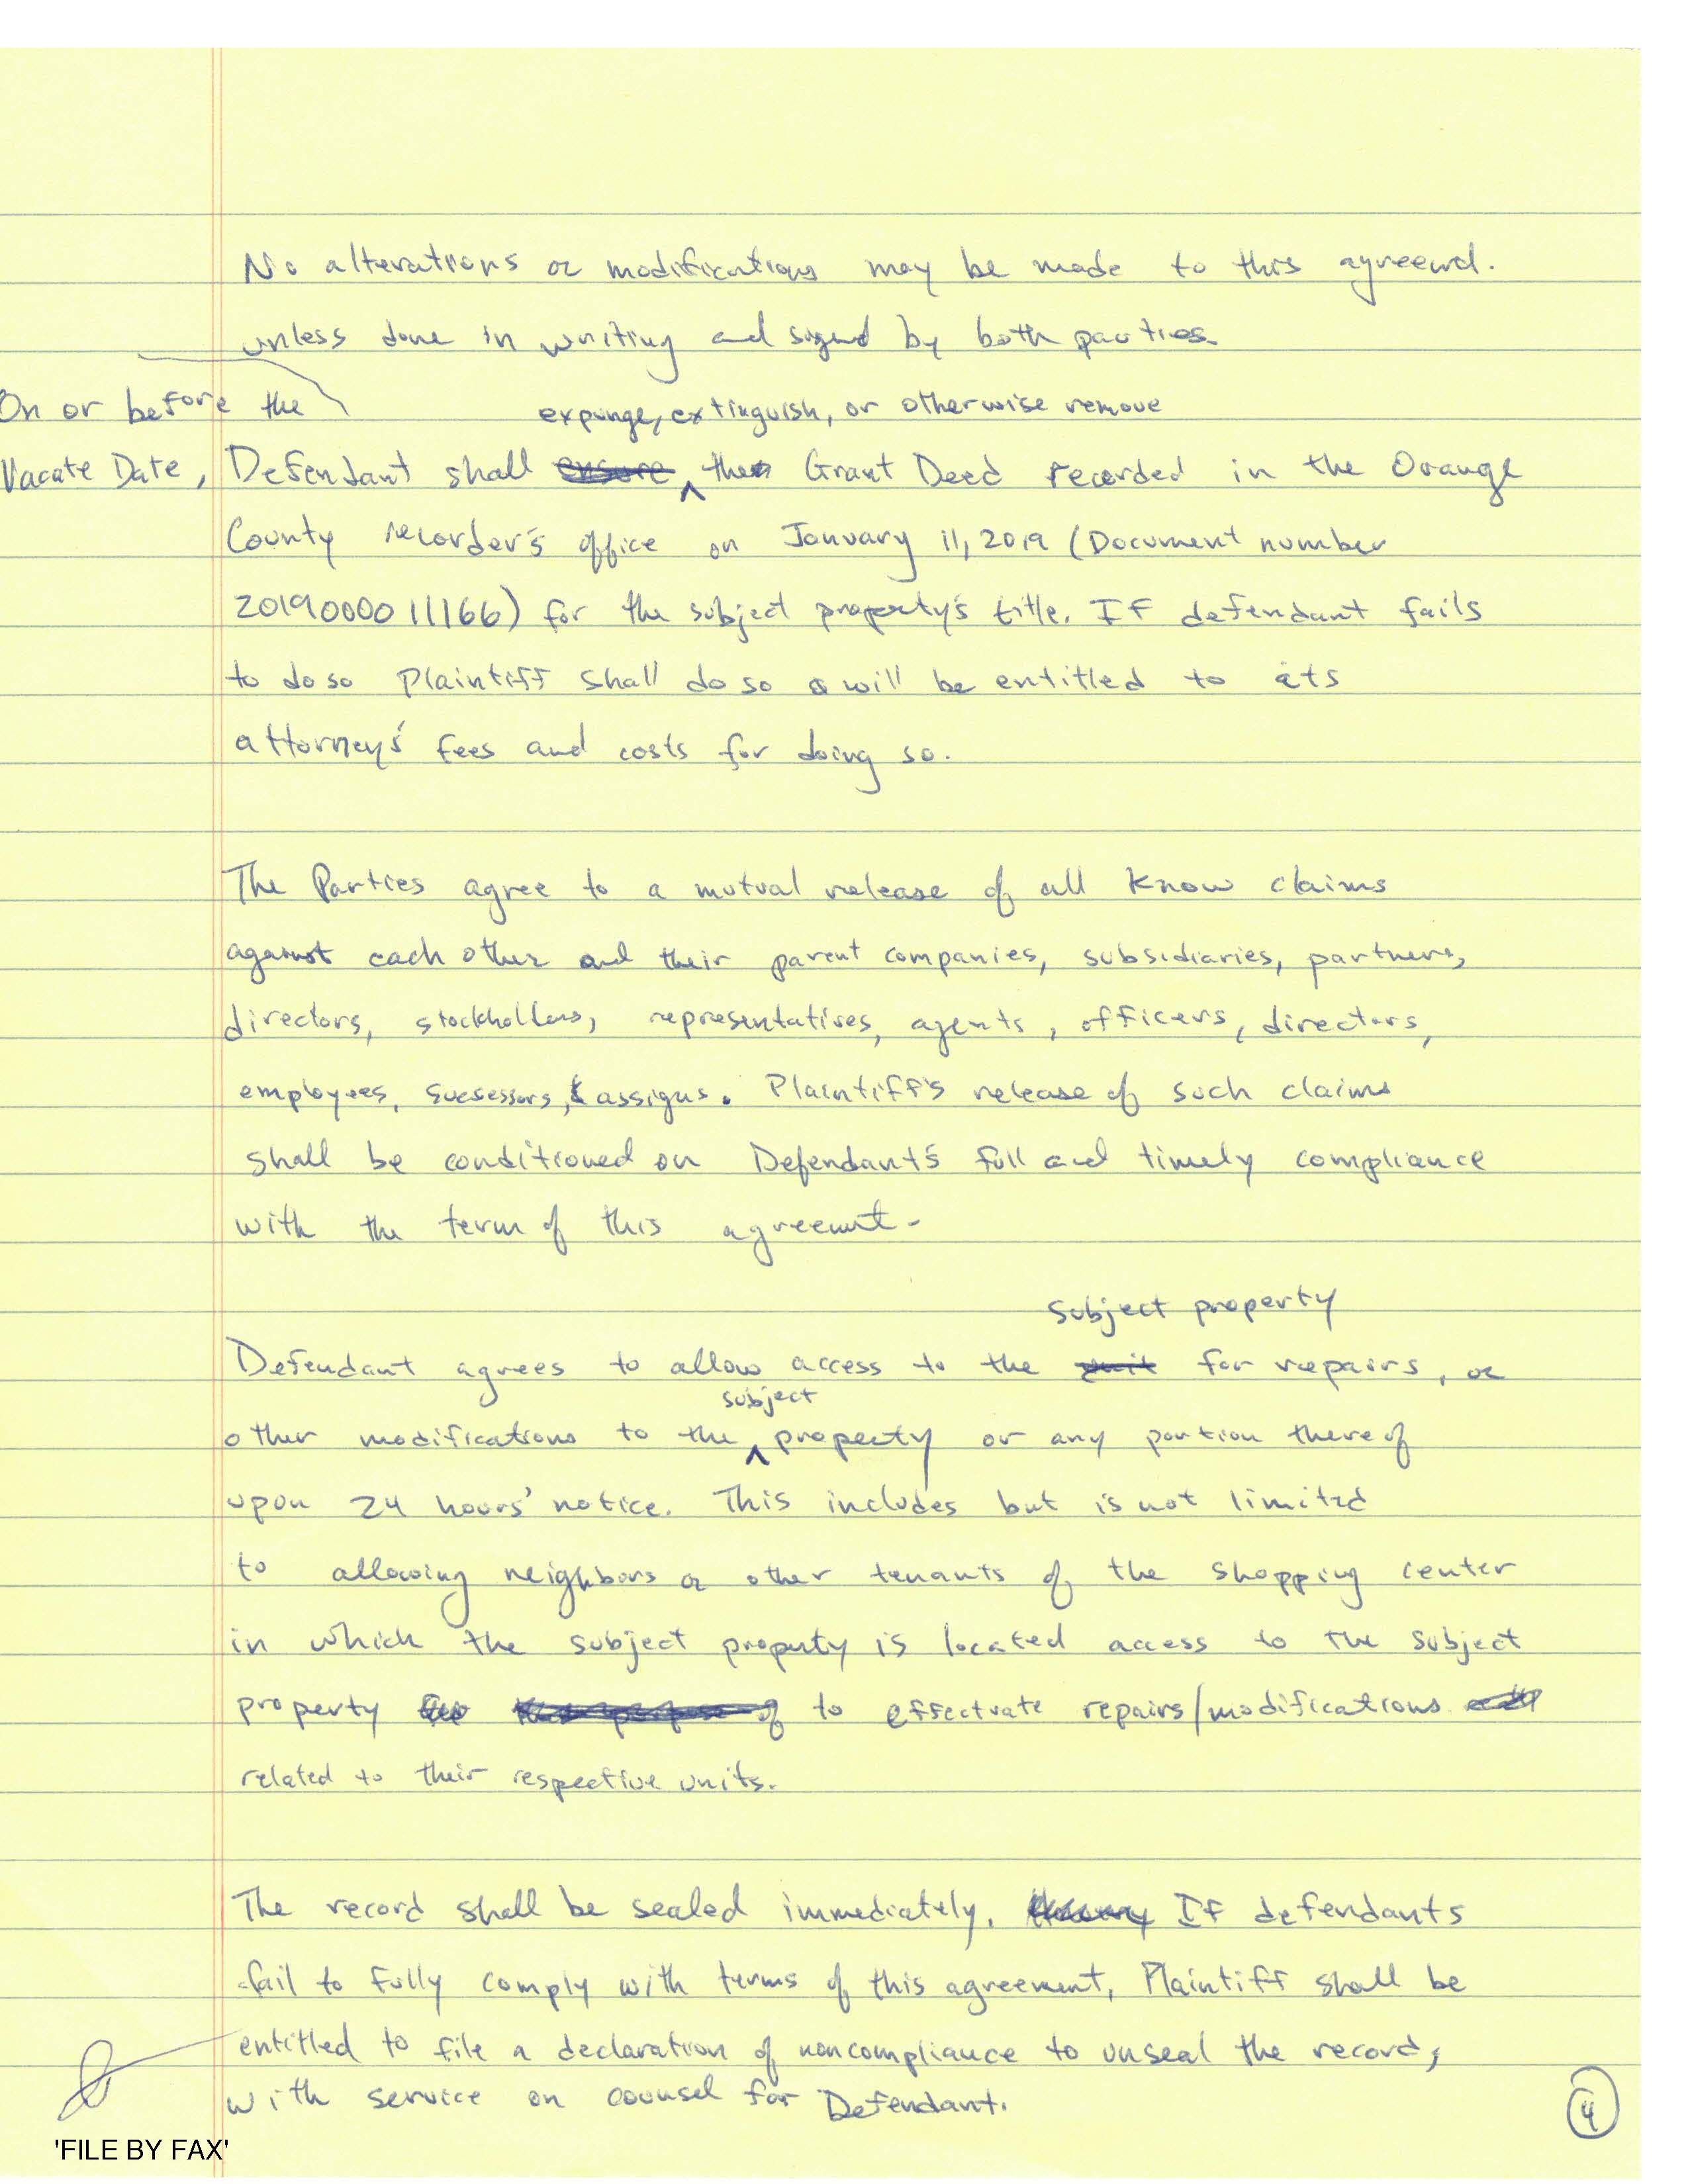 No alterations or modifications may be made to this agreemt.
unless done in writing and signed by both parties.
On or before the
expunge, extinguish, or otherwise remove
Vacate Date, Defendant shall ensure the Grant Deed recorded in the Orange
County recorder's office on January 11, 2019 (Document number
2019000011166) for the subject property's title. If defendant fails
to do so Plaintiff shall do so & will be entitled to its
attorney's fees and costs for doing so.
The Parties agree to a mutual release of all know claims
against each other and their parent companies, subsidiaries, partners,
directors, stockholders, representatives, agents, officers, directors,
employees, successors, & assigns. Plaintiff's release of such claims
shall be conditioned on Defendant's full and timely compliance
with the term of this agreemt.
subject property
Defendant agrees to allow access to the unit for repairs, or
subject
other modifications to the property or any portion thereof
upon 24 hours' notice. This includes but is not limited
to allowing neighbors or other tenants of the shopping center
in which the subject property is located access to the subject
property for the purpose of to effectuate repairs/modifications
related to their respective units.
The record shall be sealed immediately. If defendants
fail to fully comply with terms of this agreement, Plaintiff shall be
entitled to file a declaration of noncompliance to unseal the record,
with service on counsel for Defendant.
4
'FILE BY FAX'